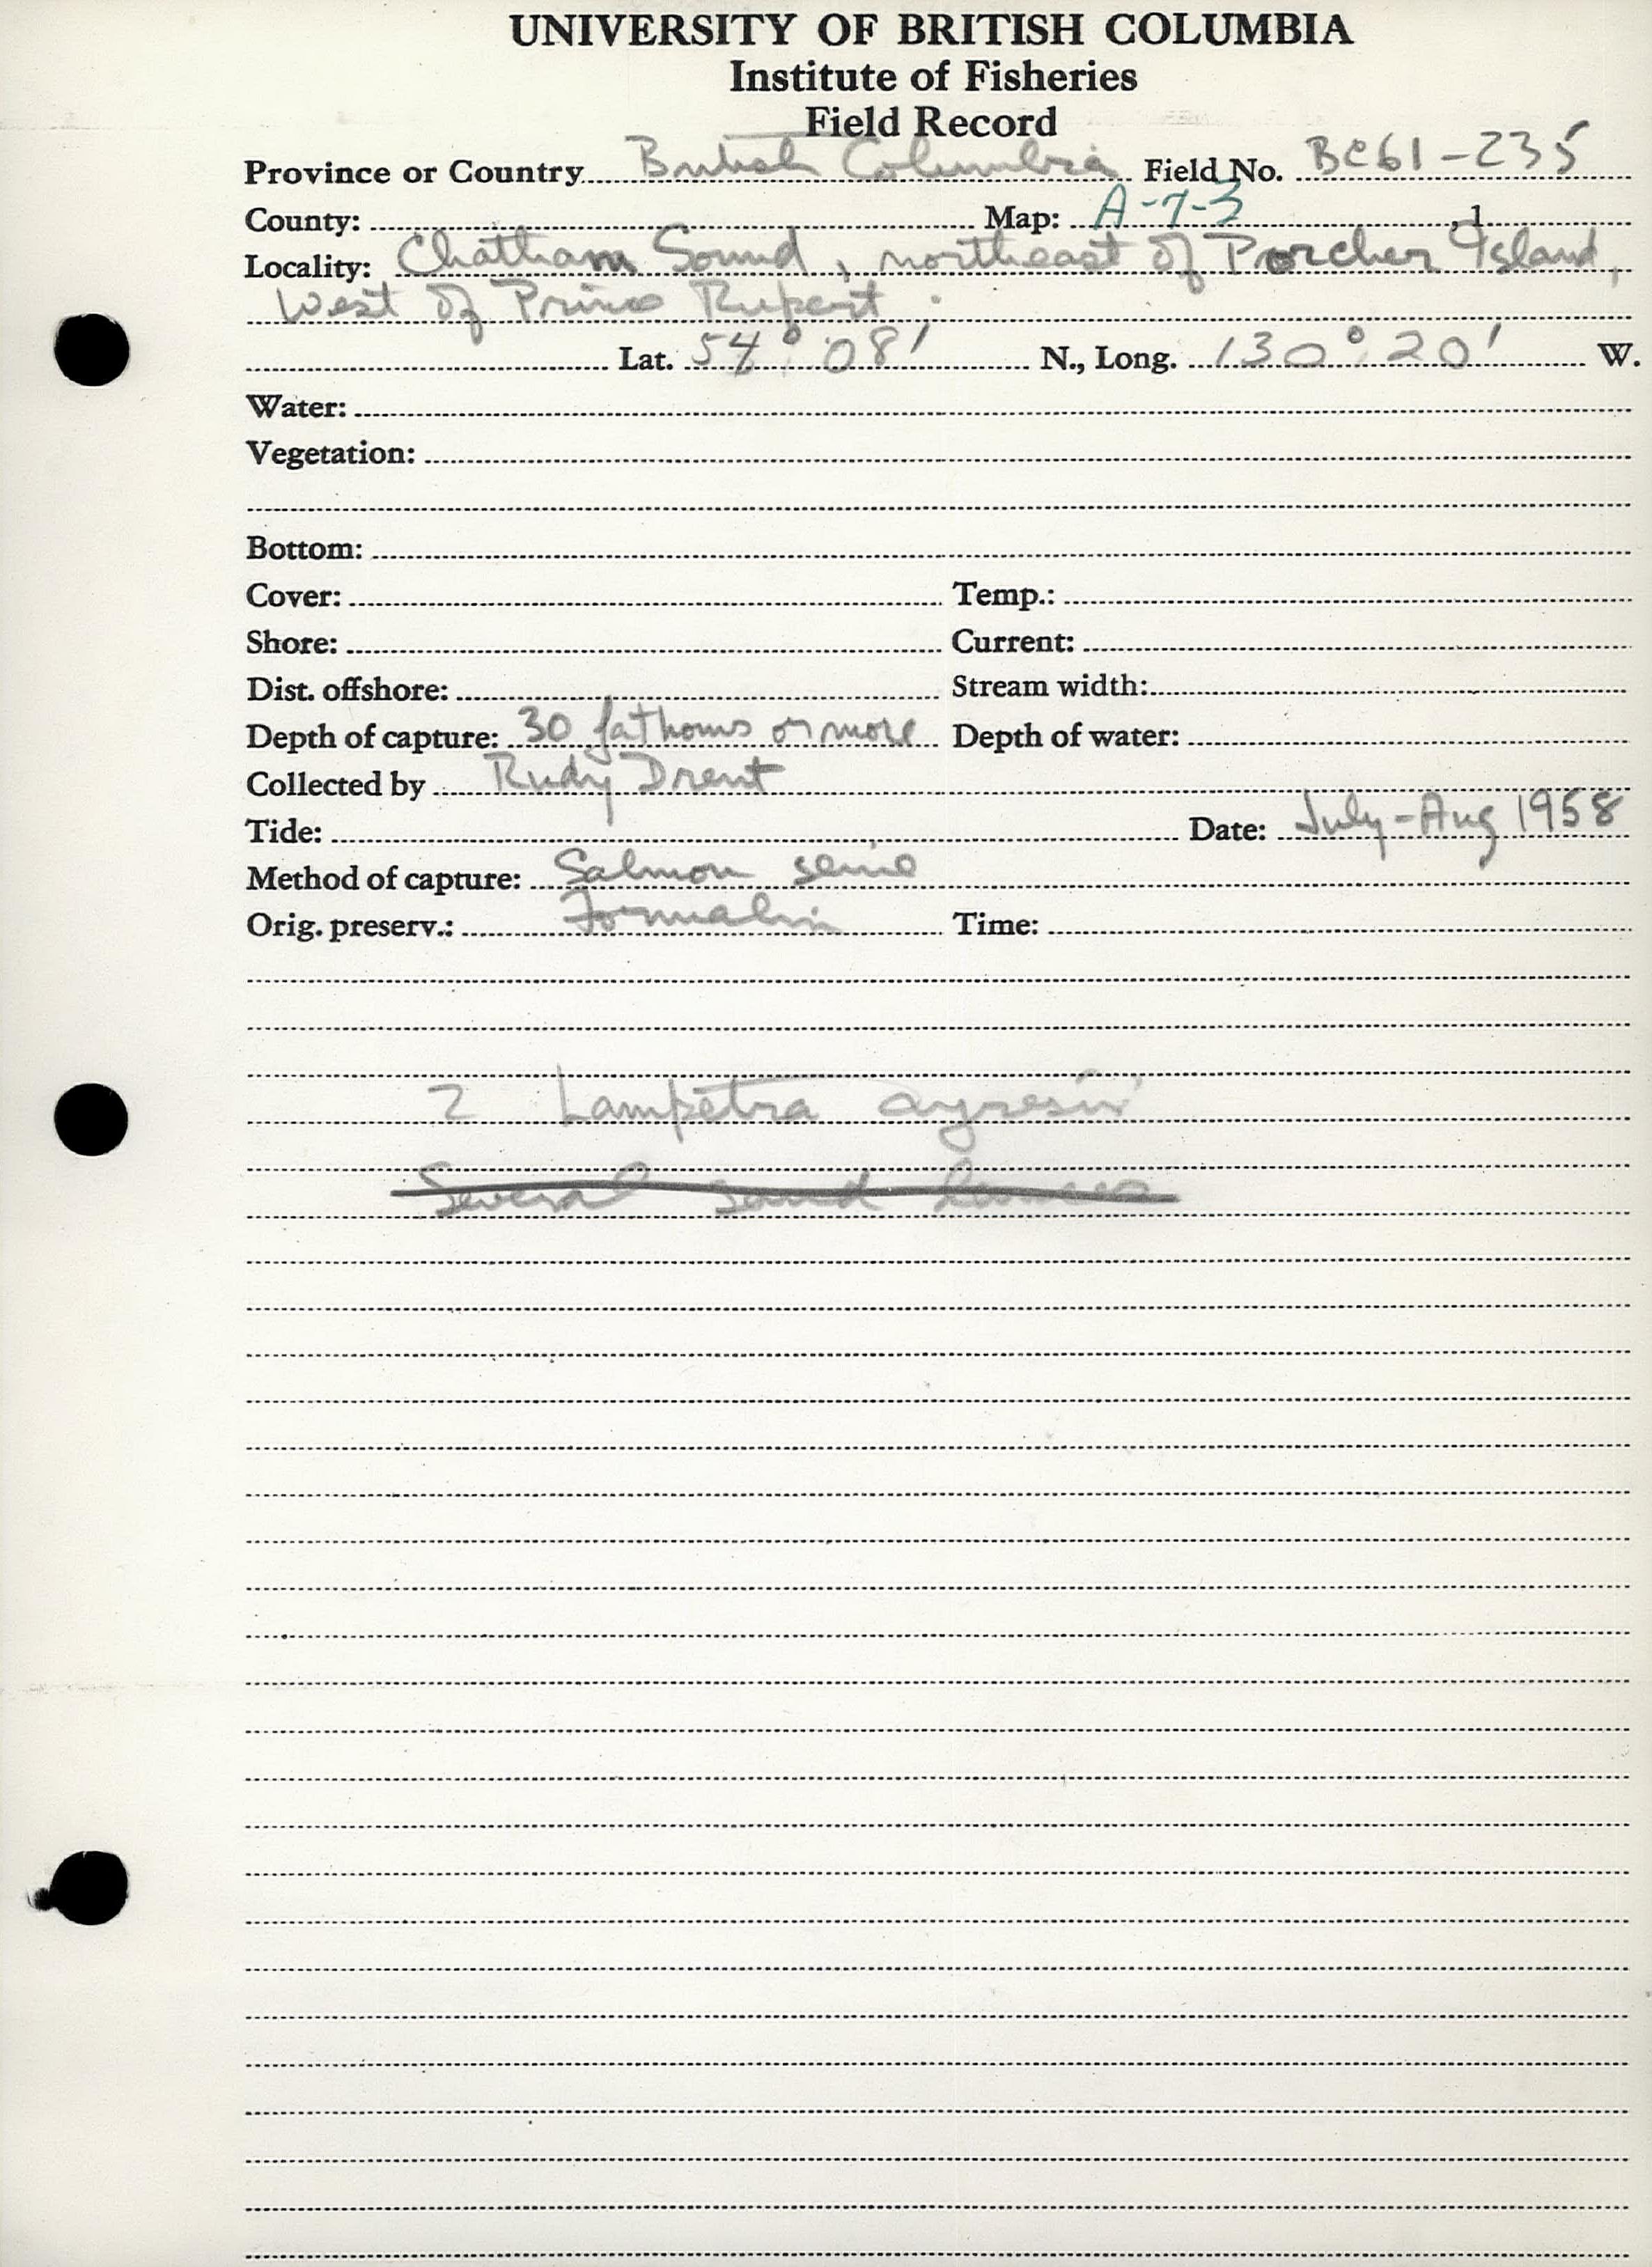 UNIVERSITY OF BRITISH COLUMBIA
Institute of Fisheries
Field Record
Province or Country British Columbia Field No. BC61-235
County: Map: A-7-3 , 1
Locality: Chatham Sound, northeast of Porcher Island,
West of Prince Rupert.
Lat. 54° 08' N., Long. 130° 20' W.
Water:
Vegetation:
Bottom:
Cover: Temp.:
Shore: Current:
Dist. offshore: Stream width:
Depth of capture: 30 fathoms or more Depth of water:
Collected by Rudy Drent
Tide: Date: July-Aug 1958
Method of capture: Salmon seine
Orig. preserv.: Formalin Time:
2 Lampetra ayresii
Several sand lances